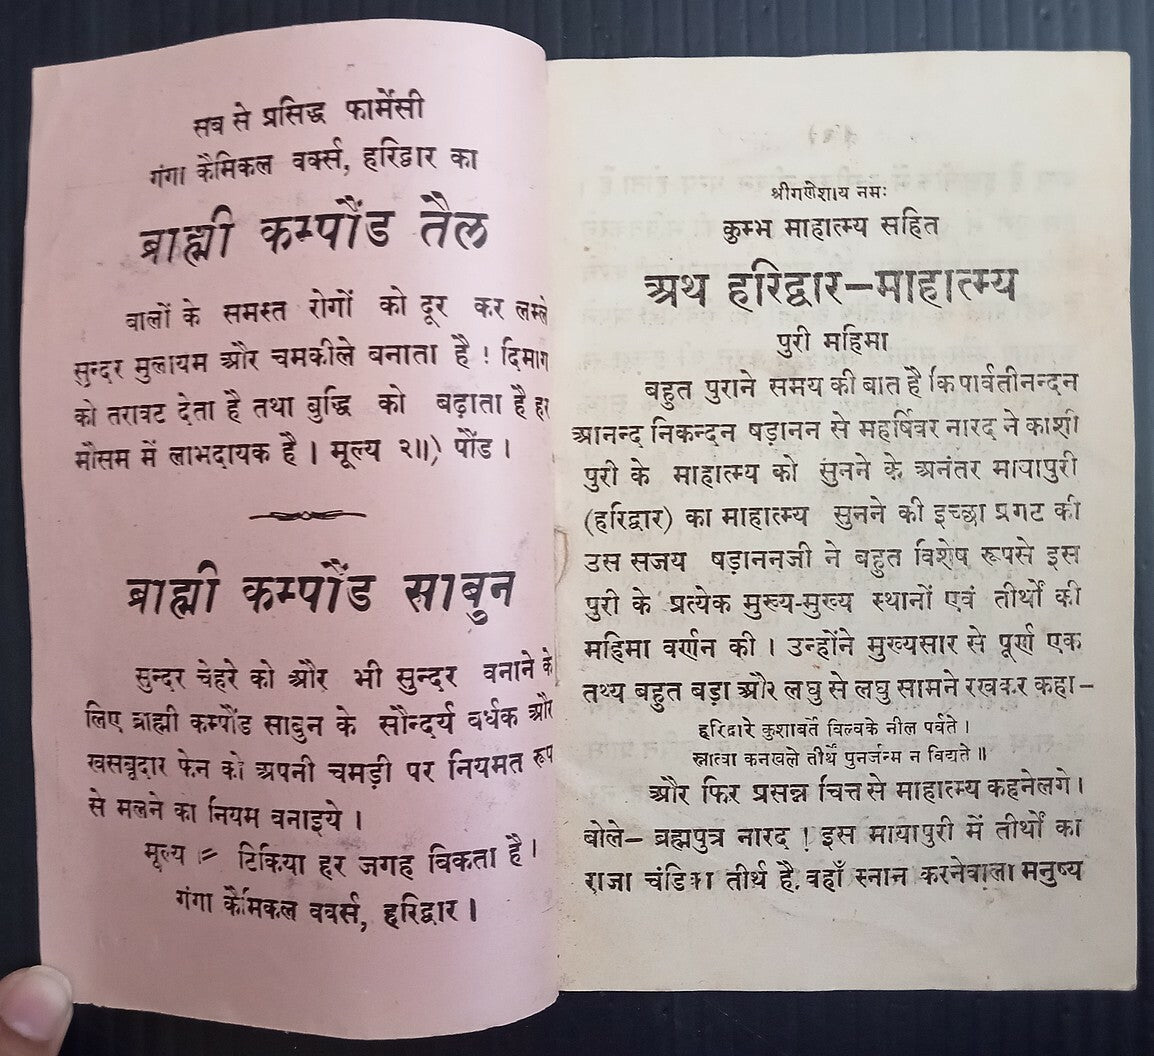 सब से प्रसिद्ध फार्मेसी
गंगा कैमिकल वर्क्स, हरिद्वार का
ब्राह्मी कम्पौंड तैल
वालों के समस्त रोगों को दूर कर लम्बे
सुन्दर मुलायम और चमकीले बनाता है ! दिमाग
को तरावट देता है तथा बुद्धि को बढ़ाता है हर
मौसम में लाभदायक है । मूल्य २॥) पौंड ।
ब्राह्मी कम्पौंड साबुन
सुन्दर चेहरे को और भी सुन्दर वनाने के
लिए ब्राह्मी कम्पौंड साबुन के सौन्दर्य बर्धक और
खसबूदार फेन को अपनी चमड़ी पर नियमत रूप
से मलने का नियम वनाइये ।
मूल्य टिकिया हर जगह विकता है।
गंगा कैमिकल ववर्स, हरिद्वार ।
श्रीगणेशाय नमः
कुम्भ माहात्म्य सहित
अथ हरिद्वार-माहात्म्य
पुरी महिमा
बहुत पुराने समय की बात है कि पार्वतीनन्दन
आनन्द निकन्दन षड़ानन से महर्षिवर नारद ने काशी
पुरी के माहात्म्य को सुनने के अनंतर मायापुरी
(हरिद्वार) का माहात्म्य सुनने की इच्छा प्रगट की
उस सजय षड़ाननजी ने बहुत विशेष रूपसे इस
पुरी के प्रत्येक मुख्य-मुख्य स्थानों एवं तीर्थों की
महिमा वर्णन की । उन्होंने मुख्यसार से पूर्ण एक
तथ्य बहुत बड़ा और लघु से लघु सामने रखकर कहा-
हरिद्वारे कुशाबर्ते विल्वके नील पर्वते ।
स्नात्वा कनखले तीर्थे पुनर्जन्म न विद्यते ॥
और फिर प्रसन्न चित्त से माहात्म्य कहनेलगे ।
बोले- ब्रह्मपुत्र नारद ! इस मायापुरी में तीर्थों का
राजा चंडिका तीर्थ है. वहाँ स्नान करनेवाला मनुष्य